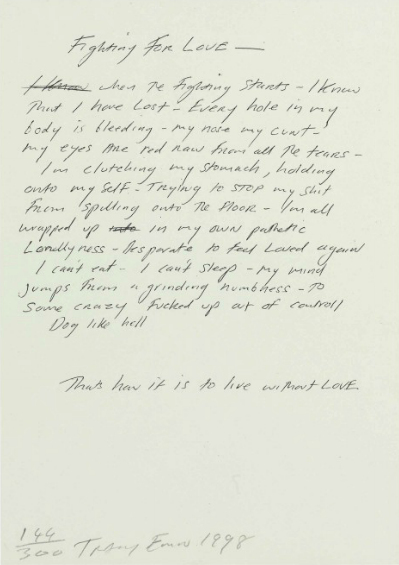 Fighting For Love —
I know when The Fighting Starts - I know
That I have Lost - Every hole in my
body is bleeding - my nose my cunt -
my eyes Are red raw From all The tears -
I'm clutching my stomach, holding
onto my self - Trying to STOP my shit
From spilling onto The Floor - I'm all
wrapped up in my own pathetic
Lonellyness - Desparate to feel Loved again
I can't eat - I can't sleep - my mind
Jumps From a grinding numbness - To
Some crazy Fucked up out of controll
Dog like hell
Thats how it is to live without LOVE
144/300 Tracey Emin 1998